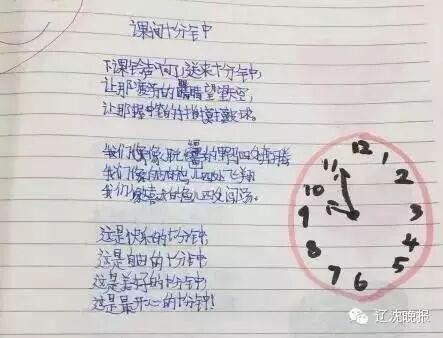 课间十分钟
下课铃声响了送来十分钟
让那疲劳的眼睛望望天空
让那握笔的手拍拍球。
我们像脱缰的野马四处奔腾
我们像的鸟儿四处飞翔
我们像的鱼儿四处闯荡。
这是快乐的十分钟
这是自由的十分钟
这是美好的十分钟
这是最开心的十分钟!
12
11
1
10
2
9
3
8
4
7
5
6
辽沈晚报